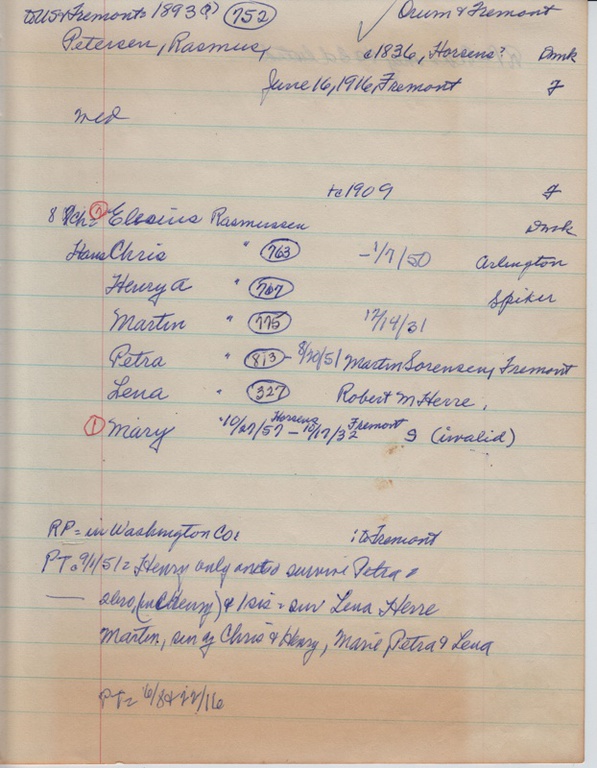 to US & Fremont 1893(?) 752 ✓ Orum & Fremont
Petersen, Rasmus, c1836, Horsens? Dmk
June 16, 1916, Fremont F
md
to 1909 F
8 ch= ② Rasmussen Dmk
Hans Chris " 763 - 1/7/50 Arlington
Henry A " 767 Spiker
Martin " 775 12/14/31
Petra " 813 - 8/30/51 Martin Sorensen, Fremont
Lena " 327 Robert M Herre,
① Mary 10/27/57 Horsens - 10/17/32 Fremont S (invalid)
RP = in Washington Co: : to Fremont
PT= 9/1/51 = Henry only one to survive Petra =
— (inc Henry) & 1 sis = sur Lena Herre
Martin, sur by Chris & Henry, Marie, Petra & Lena
PT= 6/8 & 22/16